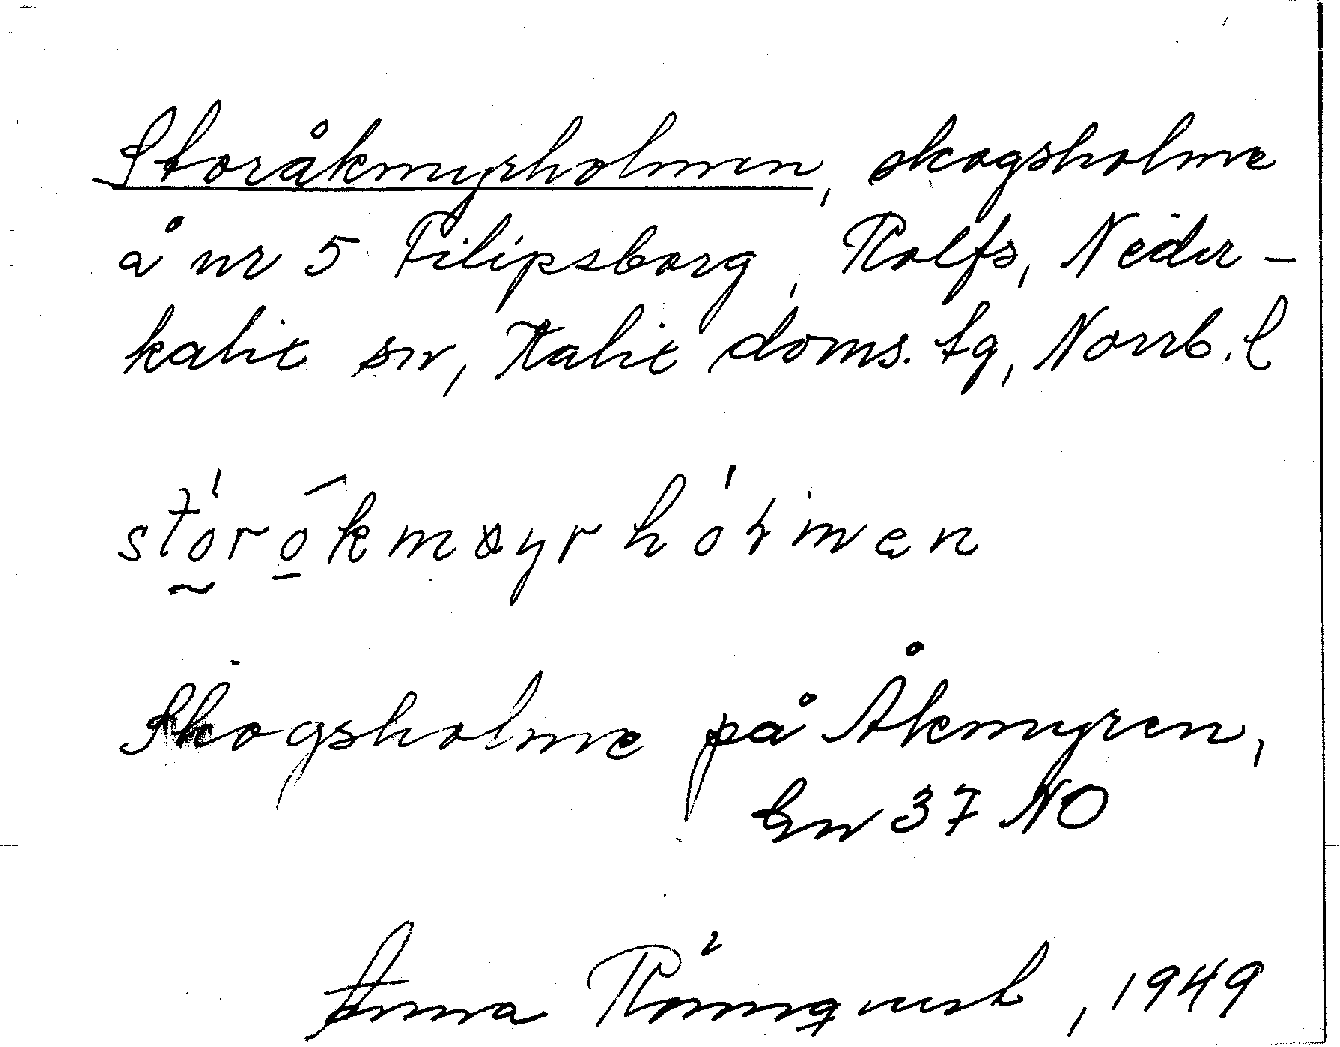 Storåkmyrholmen, skogsholme
å nr 5 Filipsborg, Rolfs, Neder-
kalix sn, Kalix doms. tg, Norrb. l
stȯrȯkmøyrhȯłmen
Skogsholme på Åkmyren,
Gw 37 NO
Anna Rönnqvist, 1949